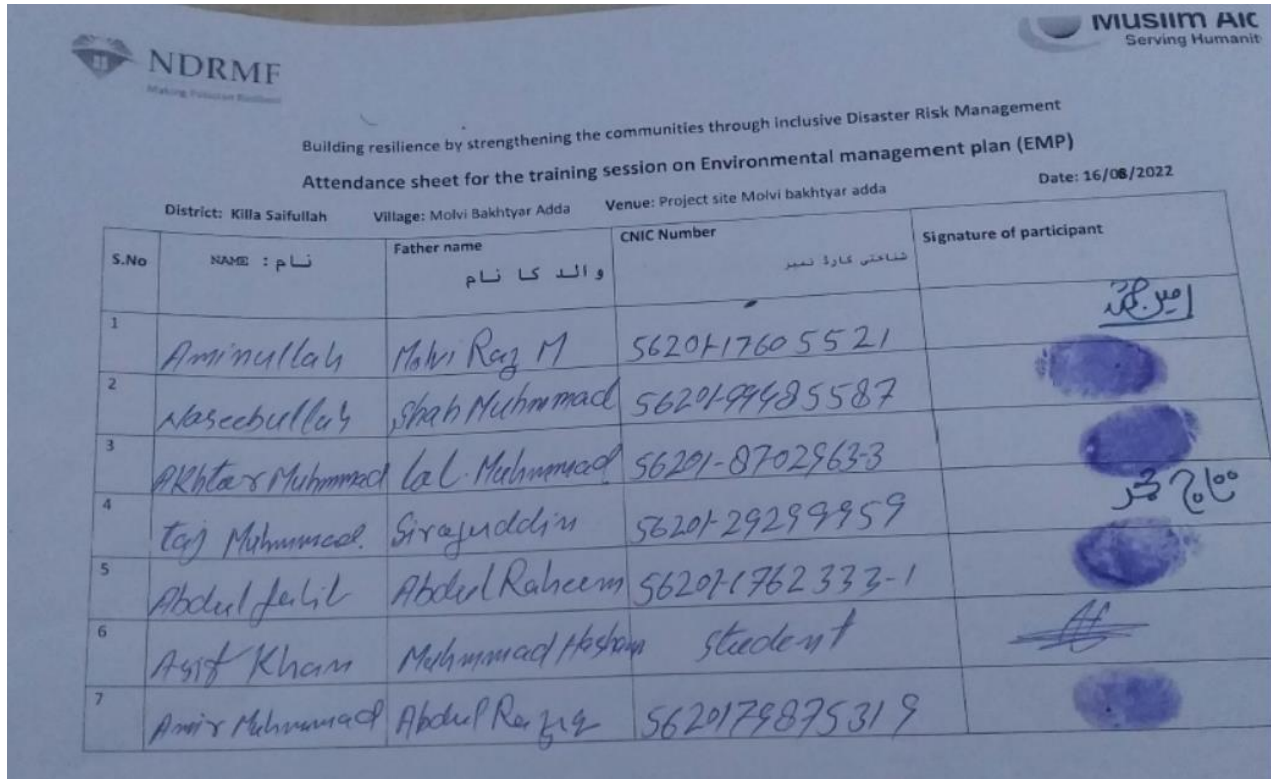 NDRMF
Making Pakistan Resilient
Muslim Aid
Serving Humanit
Building resilience by strengthening the communities through inclusive Disaster Risk Management
Attendance sheet for the training session on Environmental management plan (EMP)
District: Killa Saifullah Village: Molvi Bakhtyar Adda Venue: Project site Molvi bakhtyar adda Date: 16/08/2022
S.No NAME : نام Father name والد کا نام CNIC Number شناختی کارڈ نمبر Signature of participant
1 Aminullah Molvi Raz M 56201-17605521
2 Naseebullah Shah Muhmmad 56201-99485587
3 Akhtar Muhmmad Lal Muhmmad 56201-8702963-3
4 Taj Muhmmad. Sirajuddin 56201-29299959
5 Abdul Jalil Abdul Raheem 56201-1762333-1
6 Asif Khan Muhmmad Hasham Student
7 Amir Muhmmad Abdul Razzq 5620179875319